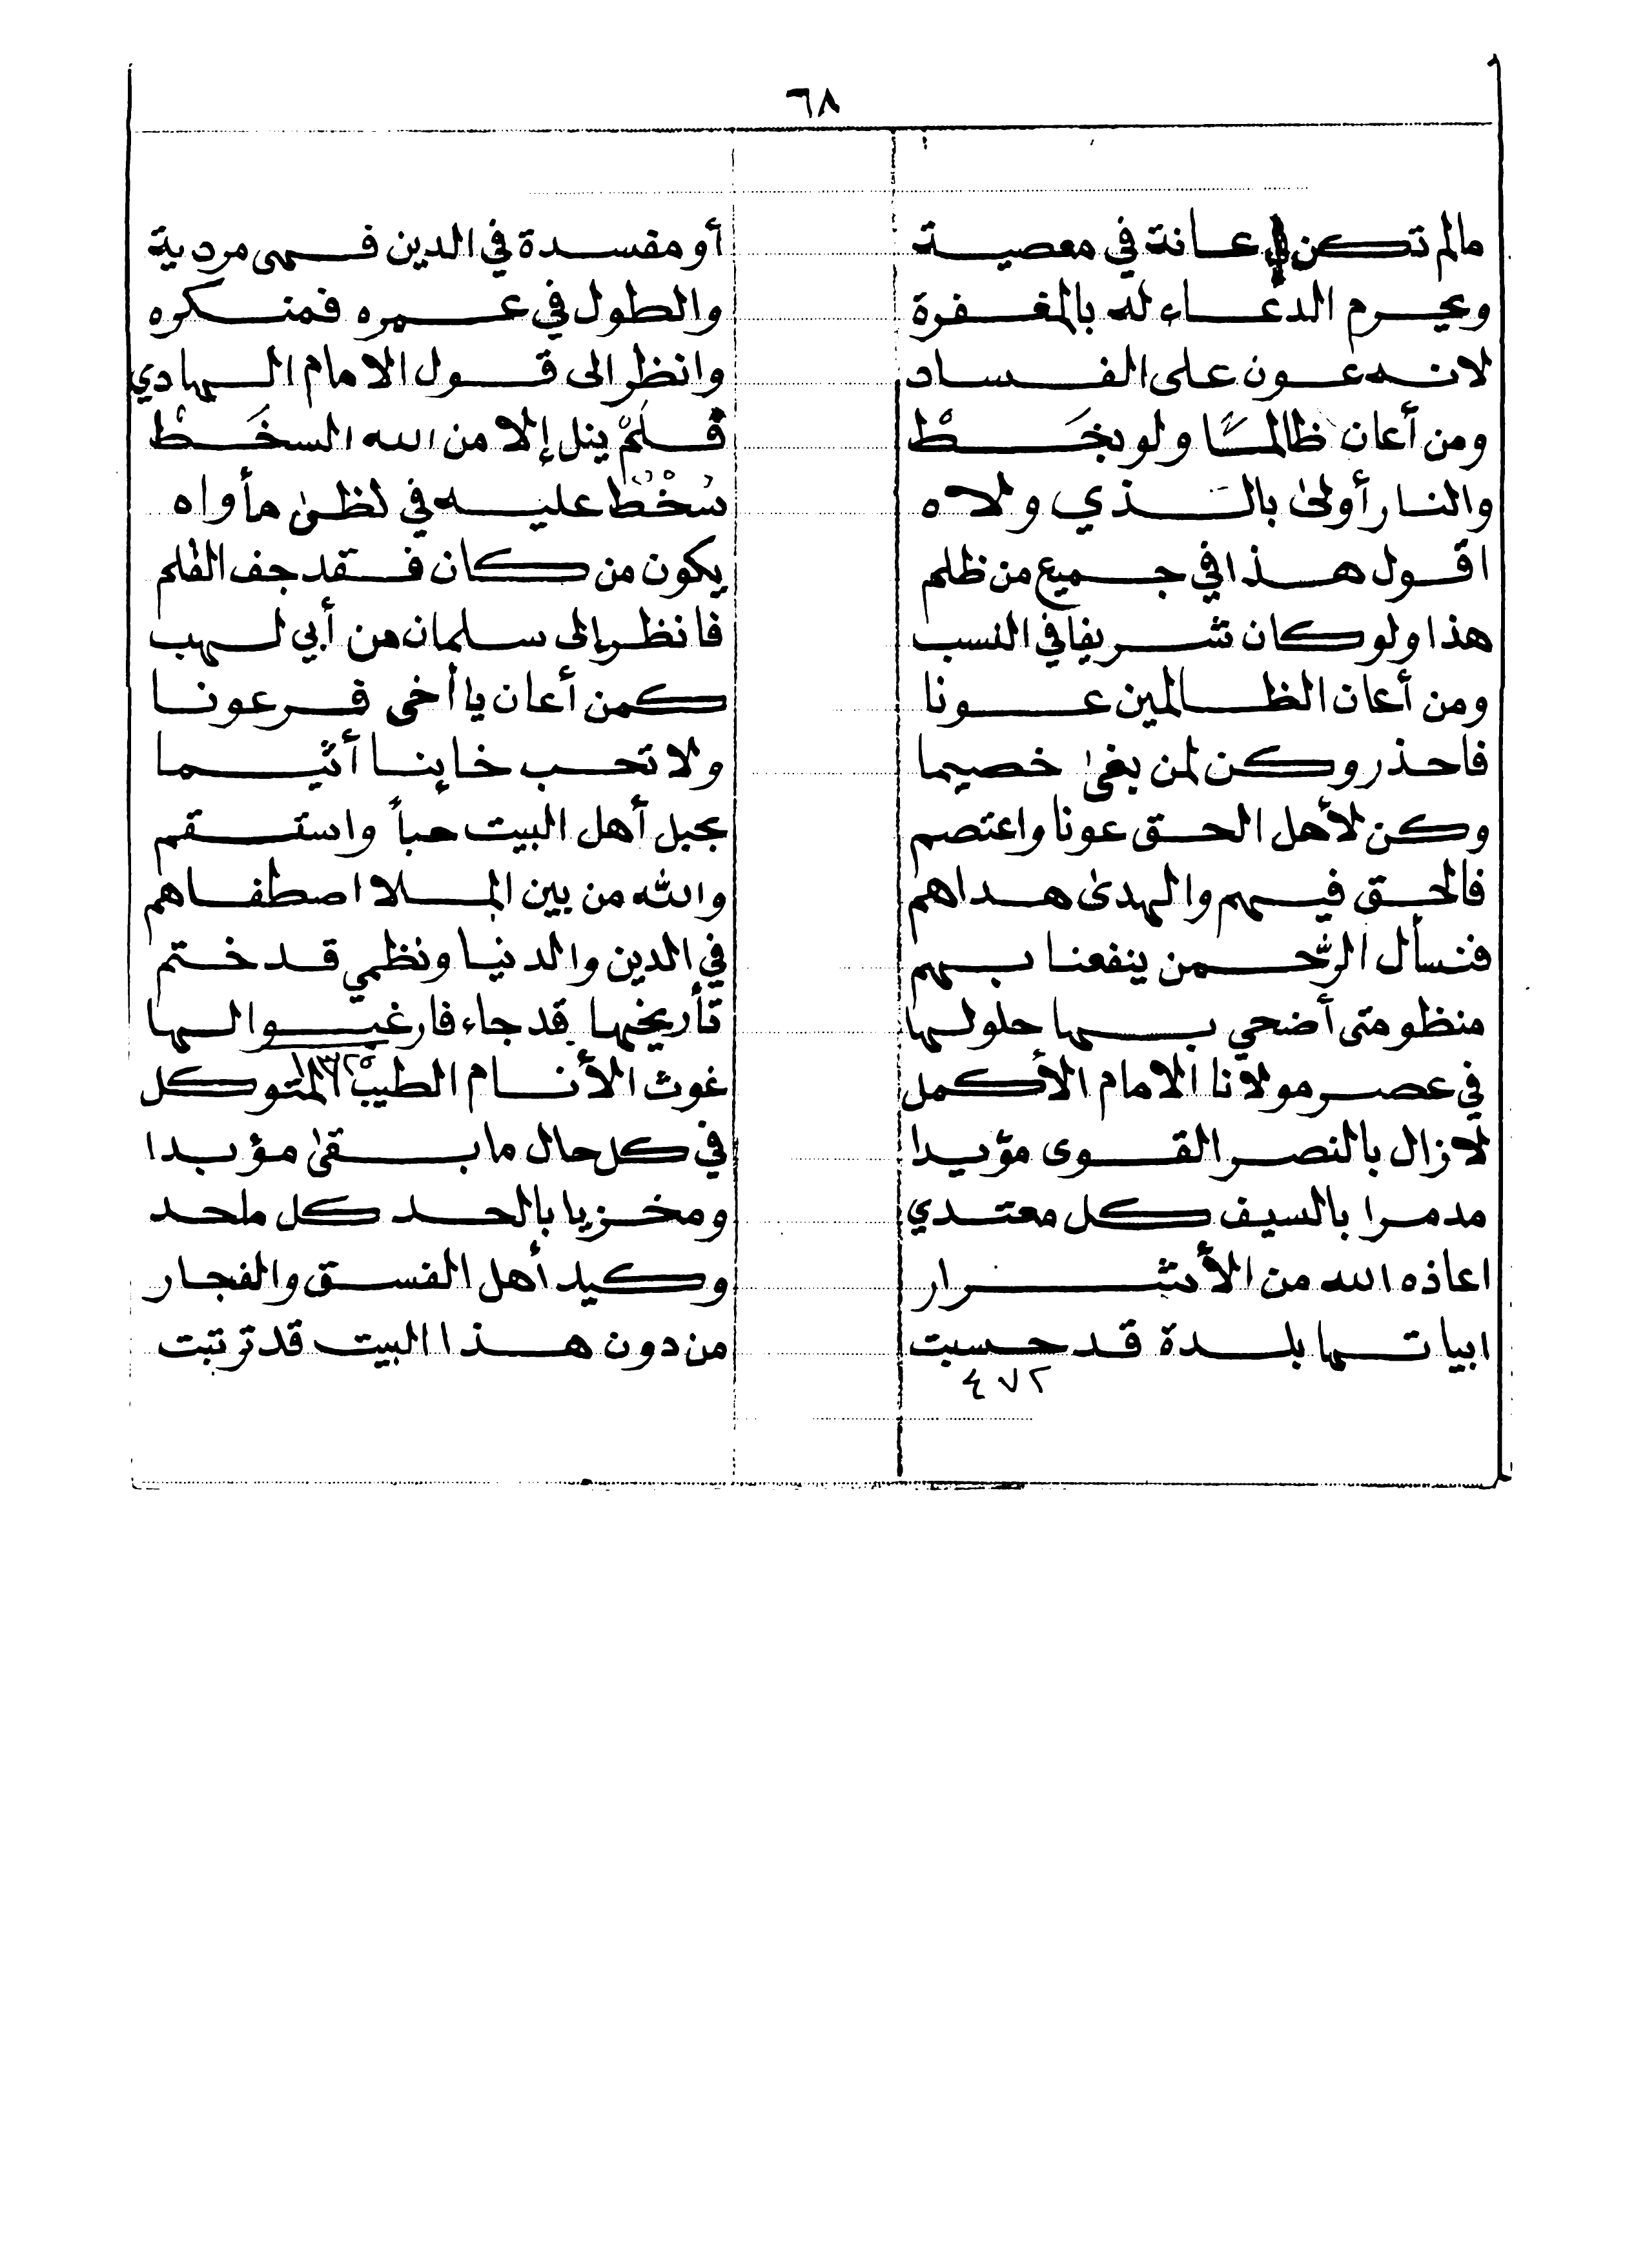 ٦٨
مالم تكن إعانة في معصية أو مفسدة في الدين فهى مردية
ويحرم الدعاء له بالمغفرة والطول في عمره فمنكره
لانه عون على الفساد وانظر الى قول الامام الهادي
ومن أعان ظالمًا ولو بخَطْ فلَمْ ينل إلا من الله السخَطْ
والنار أولىٰ بالذي ولاه سُخْطٌ عليه في لظىٰ مأواه
اقول هذا في جميع من ظلم يكون من كان فقد جف القلم
هذا ولو كان شريفا في النسب فانظر إلى سلمان من أبي لهب
ومن أعان الظالمين عونا كمن أعان يا أخى فرعونا
فاحذر وكن لمن بغىٰ خصيما ولا تحب خاينا أثيما
وكن لأهل الحق عونا واعتصم بحبل أهل البيت حباً واستقم
فالحق فيهم والهدىٰ هداهم والله من بين الملا اصطفاهم
فنسأل الرحمن ينفعنا بهم في الدين والدنيا ونظمي قد ختم
منظومتى أضحي بها حلولها تأريخها قد جاء فارغبوا لها
١٣٢٥
في عصر مولانا الامام الأكمل غوث الأنام الطيب المتوكل
لازال بالنصر القوى مؤيدا في كل حال ما بقىٰ مؤبدا
مدمرا بالسيف كل معتدي ومخزيا بالحد كل ملحد
اعاذه الله من الأشرار وكيد أهل الفسق والفجار
ابياتها بلدة قد حسبت من دون هذا البيت قد ترتبت
٤٧٢